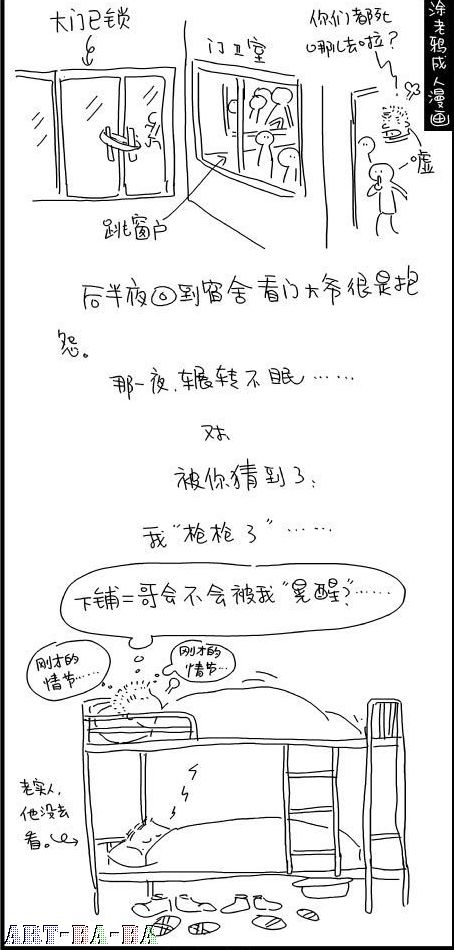 涂老鸦成人漫画
大门已锁
门卫室
你们都死
哪儿去啦？
嘘
跳窗户
后半夜回到宿舍看门大爷很是抱
怨。
那一夜，辗转不眠……
对
被你猜到了，
我“枪枪了”……
下铺二哥会不会被我“晃醒？”……
刚才的
情节……
刚才的
情节…
老实人，
他没去
看。
ART-BA-BA